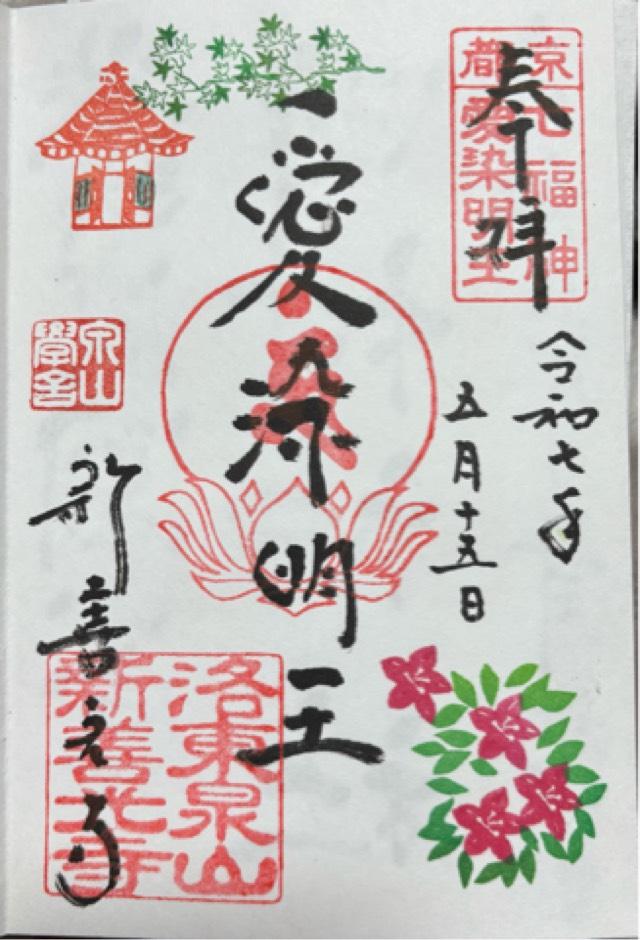 奉拝
京都七福神
愛染明王
令和七年
五月十五日
愛染明王
泉山
學舎
新善光寺
洛東泉山
新善光寺